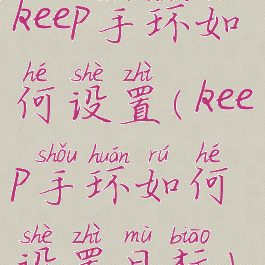 keep手环如
hé shè zhì
何设置(kee
shǒu huán rú hé
p手环如何
shè zhì mù biāo
设置目标)